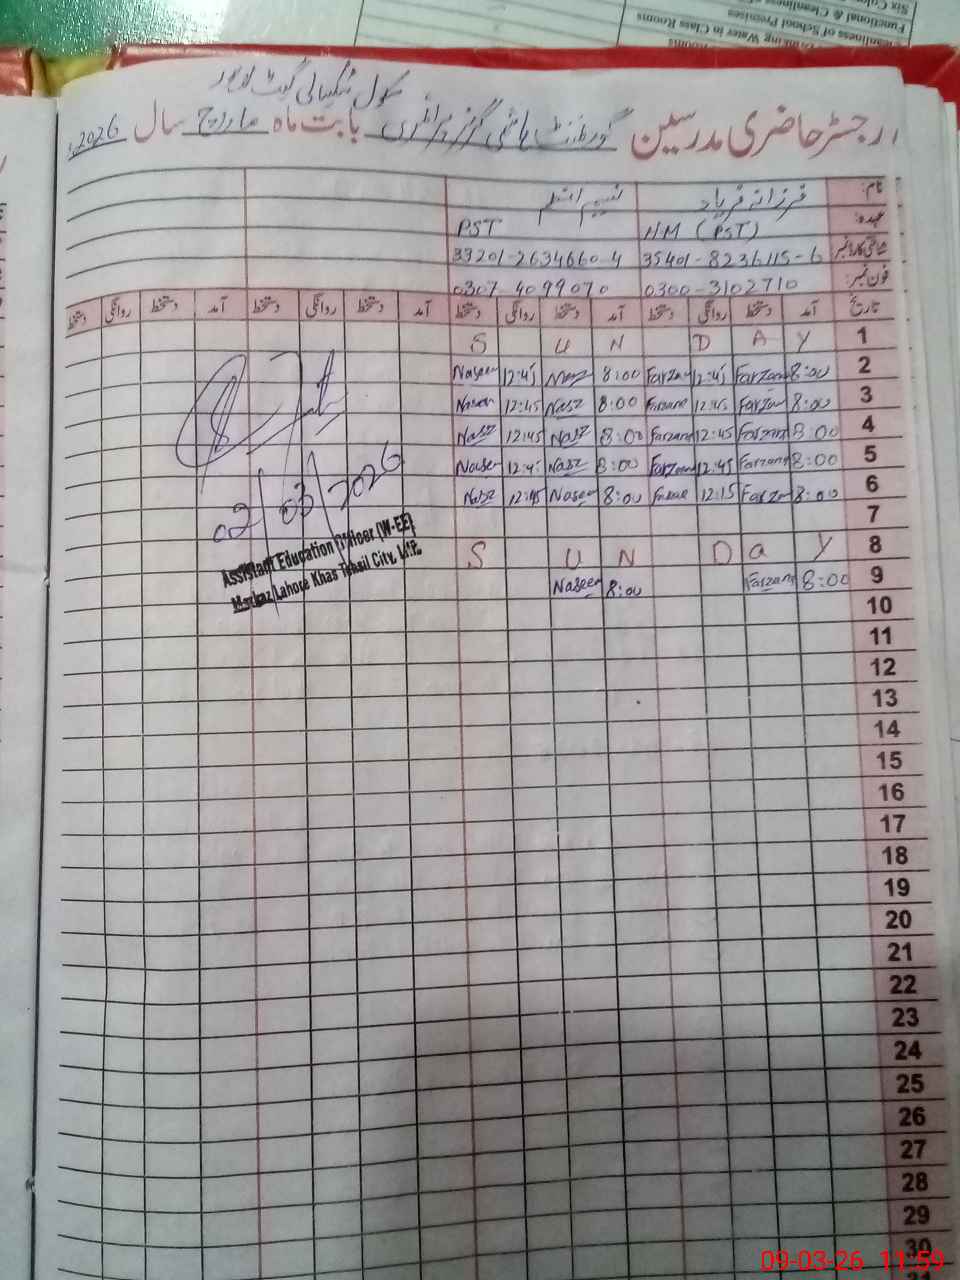 Six
Functional & Cleanliness of
Cleanliness of School Premises
Drinking Water in Class Rooms
سکول ٹیکسالی گیٹ لاہور
رجسٹر حاضری مدرسین گورنمنٹ ہاشمی گرلز پرائمری بابت ماہ مارچ سال 2026ء
نام: فرزانہ فریاد نسیم اسلم
عہدہ: HM (PST) PST
شناختی کارڈ نمبر 35401-8236115-6 33201-2634660-4
فون نمبر: 0300-3102710 0307-4099070
تاریخ آمد دستخط روانگی دستخط آمد دستخط روانگی دستخط آمد دستخط روانگی دستخط آمد دستخط روانگی دستخط
S U N D A Y 1
Naseem 12:45 8:00 Farzan 12:45 Farzana 8:00 2
Naseem 12:45 Nasz 8:00 Farzana 12:45 Farzan 8:00 3
Nasz 12:45 Nasz 8:00 Farzana 12:45 Farzana 8:00 4
Naseem 12:45 Nasz 8:00 Farzana 12:45 Farzana 8:00 5
Nasz 12:45 Naseem 8:00 12:15 Farzan 8:00 6
7
S U N D a Y 8
Naseem 8:00 Farzana 8:00 9
02/03/2026
Assistant Education Officer (W-EE)
Markaz Lahore Khas Tehsil City, LHR.
10
11
12
13
14
15
16
17
18
19
20
21
22
23
24
25
26
27
28
29
30
09-03-26 11:59